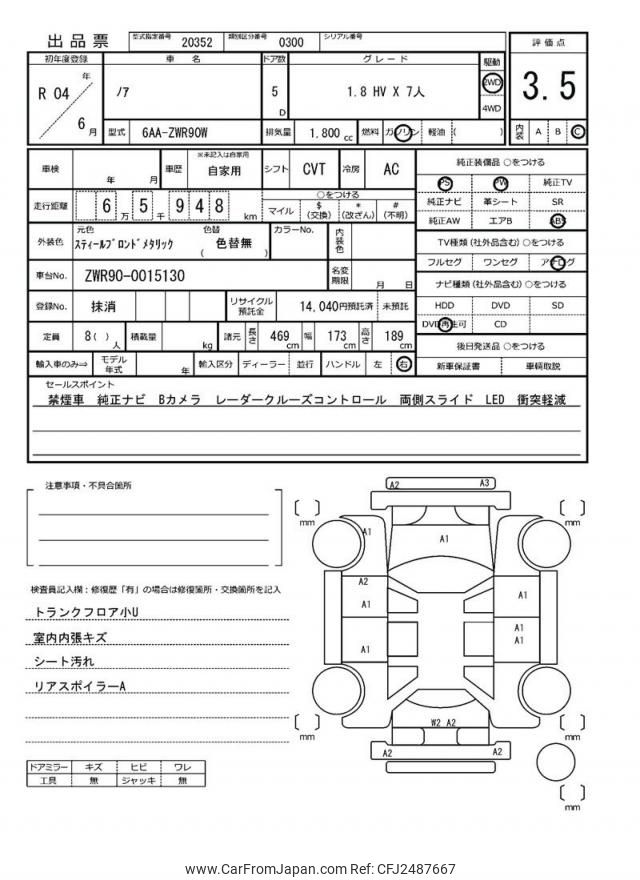 出品票
型式指定番号 20352 類別区分番号 0300 シリアル番号
初年度登録 車名 ドア数 グレード 駆動 評価点
R 04 年 6 月
ノア
5 D
1.8 HV X 7人
2WD
4WD
3.5
型式 6AA-ZWR90W 排気量 1.800 cc 燃料 ガソリン 軽油 ( )
内装 A B C
車検 年 月 車歴 ※未記入は自家用 自家用 シフト CVT 冷房 AC
走行距離 6 万 5 千 9 4 8 km
○をつける
マイル $ (交換) * (改ざん) # (不明)
外装色 元色 スティールブロンドメタリック 色替 色替無 ( ) カラーNo. 内装色
車台No. ZWR90-0015130 名変期限 月 日
登録No. 抹消 リサイクル預託金 14,040円預託済 未預託
定員 8( )人 積載量 kg 諸元 長さ 469 cm 幅 173 cm 高さ 189 cm
輸入車のみ⇒ モデル年式 年 輸入区分 ディーラー 並行 ハンドル 左 右
純正装備品 ○をつける
PS PW 純正TV
純正ナビ 革シート SR
純正AW エアB ABS
TV種類(社外品含む)○をつける
フルセグ ワンセグ アナログ
ナビ種類(社外品含む)○をつける
HDD DVD SD
DVD再生可 CD
後日発送品 ○をつける
新車保証書 車輌取説
セールスポイント
禁煙車 純正ナビ Bカメラ レーダークルーズコントロール 両側スライド LED 衝突軽減
注意事項・不具合箇所
検査員記入欄:修復歴「有」の場合は修復箇所・交換箇所を記入
トランクフロア小U
室内内張キズ
シート汚れ
リアスポイラーA
ドアミラー キズ ヒビ ワレ
工具 無 ジャッキ 無
A2 A3
[ ] mm [ ] mm
A1 A1
A2
A1 A1
A1
A1 A1
W2 A2
[ ] mm [ ] mm
A2 A2
[ ] mm
www.CarFromJapan.com Ref: CFJ2487667